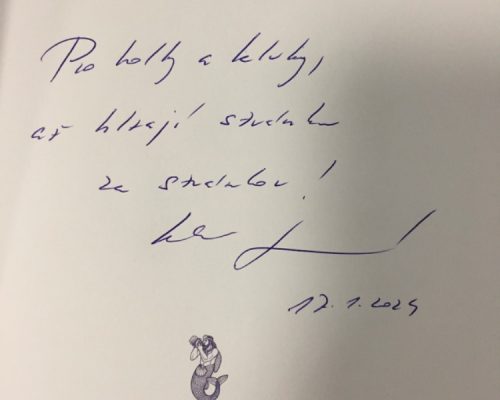 Pro holky a kluky,
ať hltají stránku
za stránkou!
17.1.2024